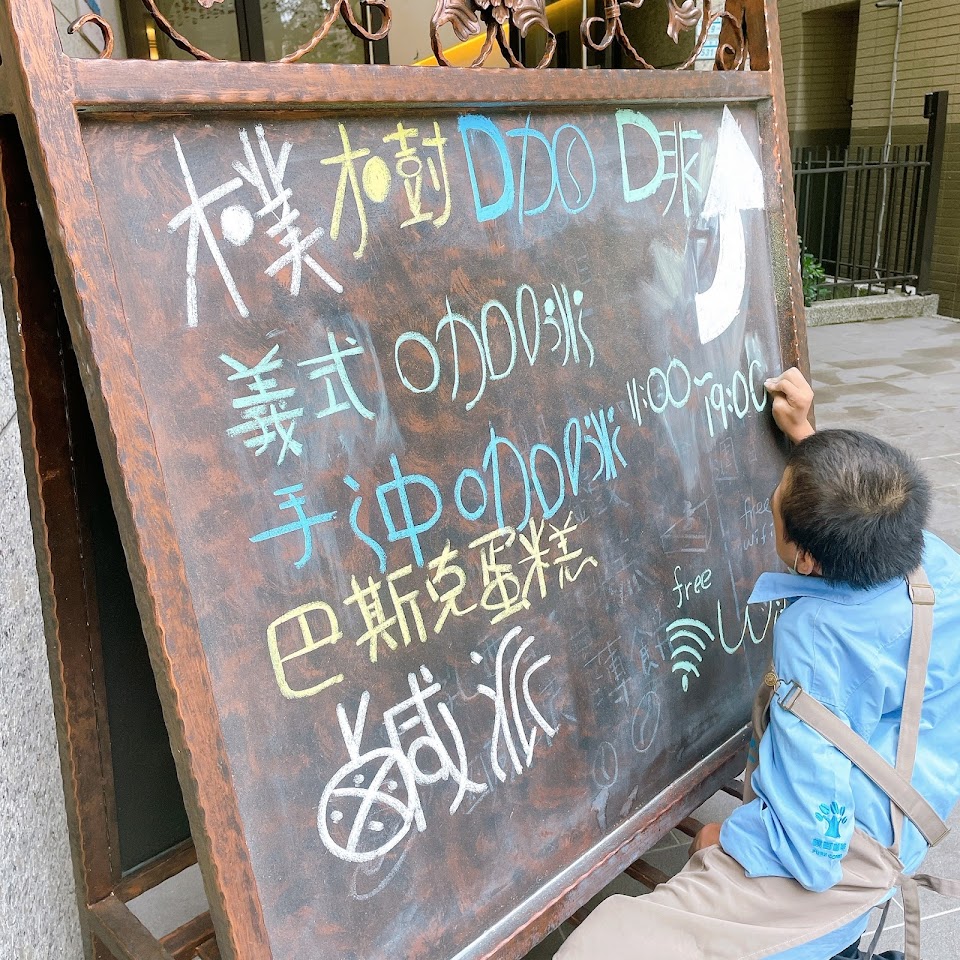 樸樹咖啡
義式咖啡
11:00~19:00
手沖咖啡
巴斯克蛋糕
free
鹹派
free
wifi